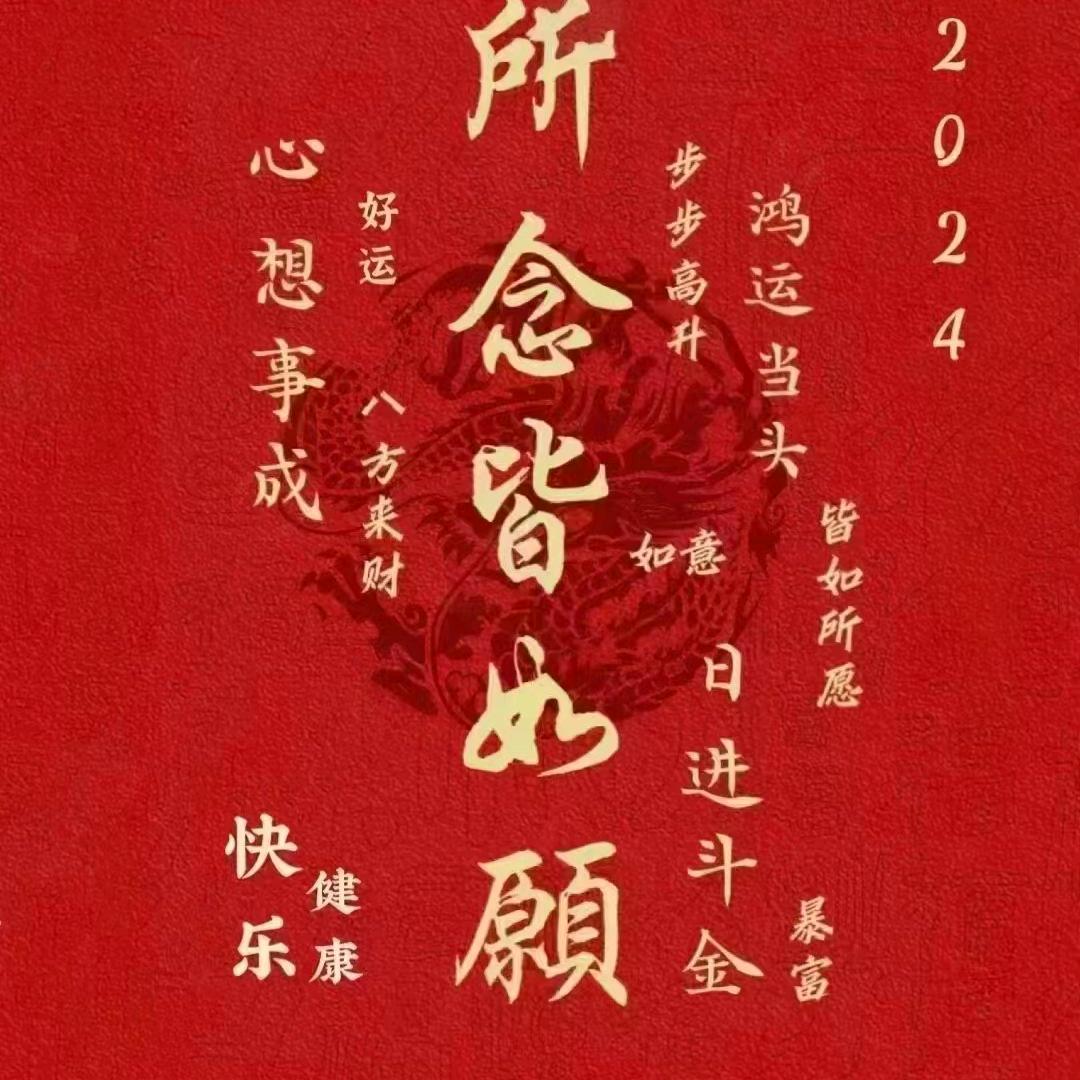 2024
所念皆如願
心想事成
好运
八方来财
步步高升
鸿运当头
如意
皆如所愿
日进斗金
暴富
快乐
健康